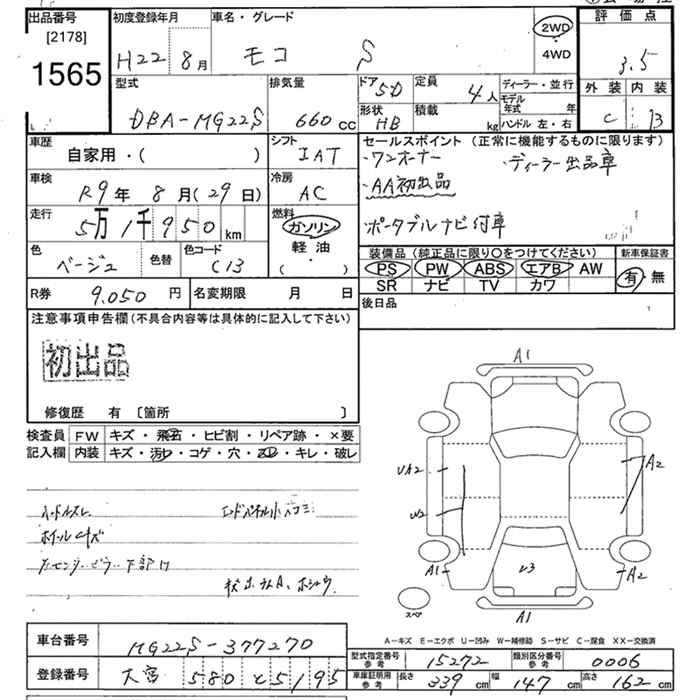 出品番号
[2178]
1565
初度登録年月
H22 8月
車名・グレード
モコ S
2WD
4WD
評価点
3.5
外装 内装
C B
型式
DBA-MG22S
排気量
660 cc
ドア 5D
定員 4人
形状 HB
積載 kg
ディーラー・並行
モデル年式 年
ハンドル 左・右
車歴
自家用・( )
シフト
IAT
セールスポイント (正常に機能するものに限ります)
・ワンオーナー ・ディーラー出品車
・AA初出品
・ポータブルナビ付車
車検
R9年 8月(29日)
冷房
AC
走行
5万1千950 km
燃料
ガソリン
軽油
・( )
色
ベージュ
色替
色コード
C13
装備品 (純正品に限り○をつけてください)
PS PW ABS エアB AW
SR ナビ TV カワ
新車保証書
有・無
R券 9,050円
名変期限 月 日
後日品
注意事項申告欄 (不具合内容等は具体的に記入して下さい)
初出品
修復歴 有 〔箇所 〕
検査員 FW キズ・飛石・ヒビ割・リペア跡・×要
記入欄 内装 キズ・汚レ・コゲ・穴・スレ・キレ・破レ
ハンドルスレ
エンドパネル小ヘコミ
ホイールキズ
A1
UA2
U2
A2
A1
A2
U3
A1
スペア
A-キズ E-エクボ U-凹み W-補修跡 S-サビ C-腐食 XX-交換済
車台番号 MG22S-377270
登録番号 大宮 580 と 5195
型式指定番号 参考 15272
類別区分番号 参考 0006
車庫証明用 参考 長さ 339 cm 幅 147 cm 高さ 162 cm